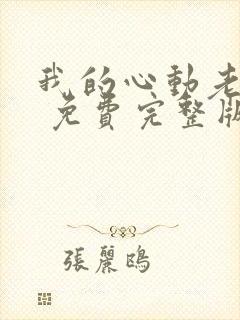 我的心動老
免費完整版
張麗鴎